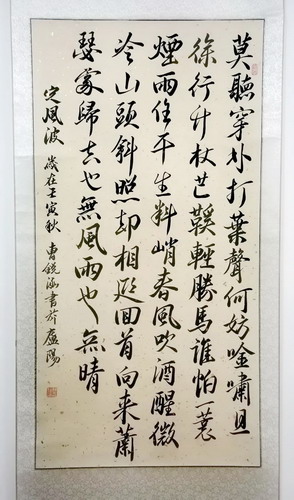 莫聽穿林打葉聲何妨唫嘯且
徐行竹杖芒鞵輕勝馬誰怕一蓑
煙雨任平生料峭春風吹酒醒微
冷山頭斜照却相迎回首向来蕭
瑟處歸去也無風雨也無晴
定風波 歲在壬寅秋 曹鋭涵書於廬陽